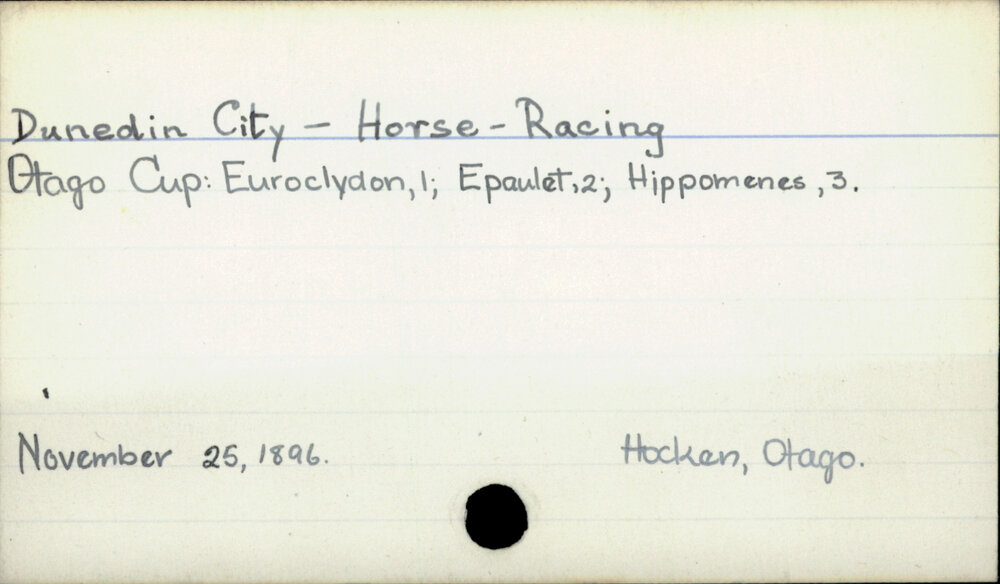 Dunedin City - Horse-Racing
Otago Cup: Euroclydon, 1; Epaulet, 2; Hippomenes, 3.
November 25, 1896.
Hocken, Otago.